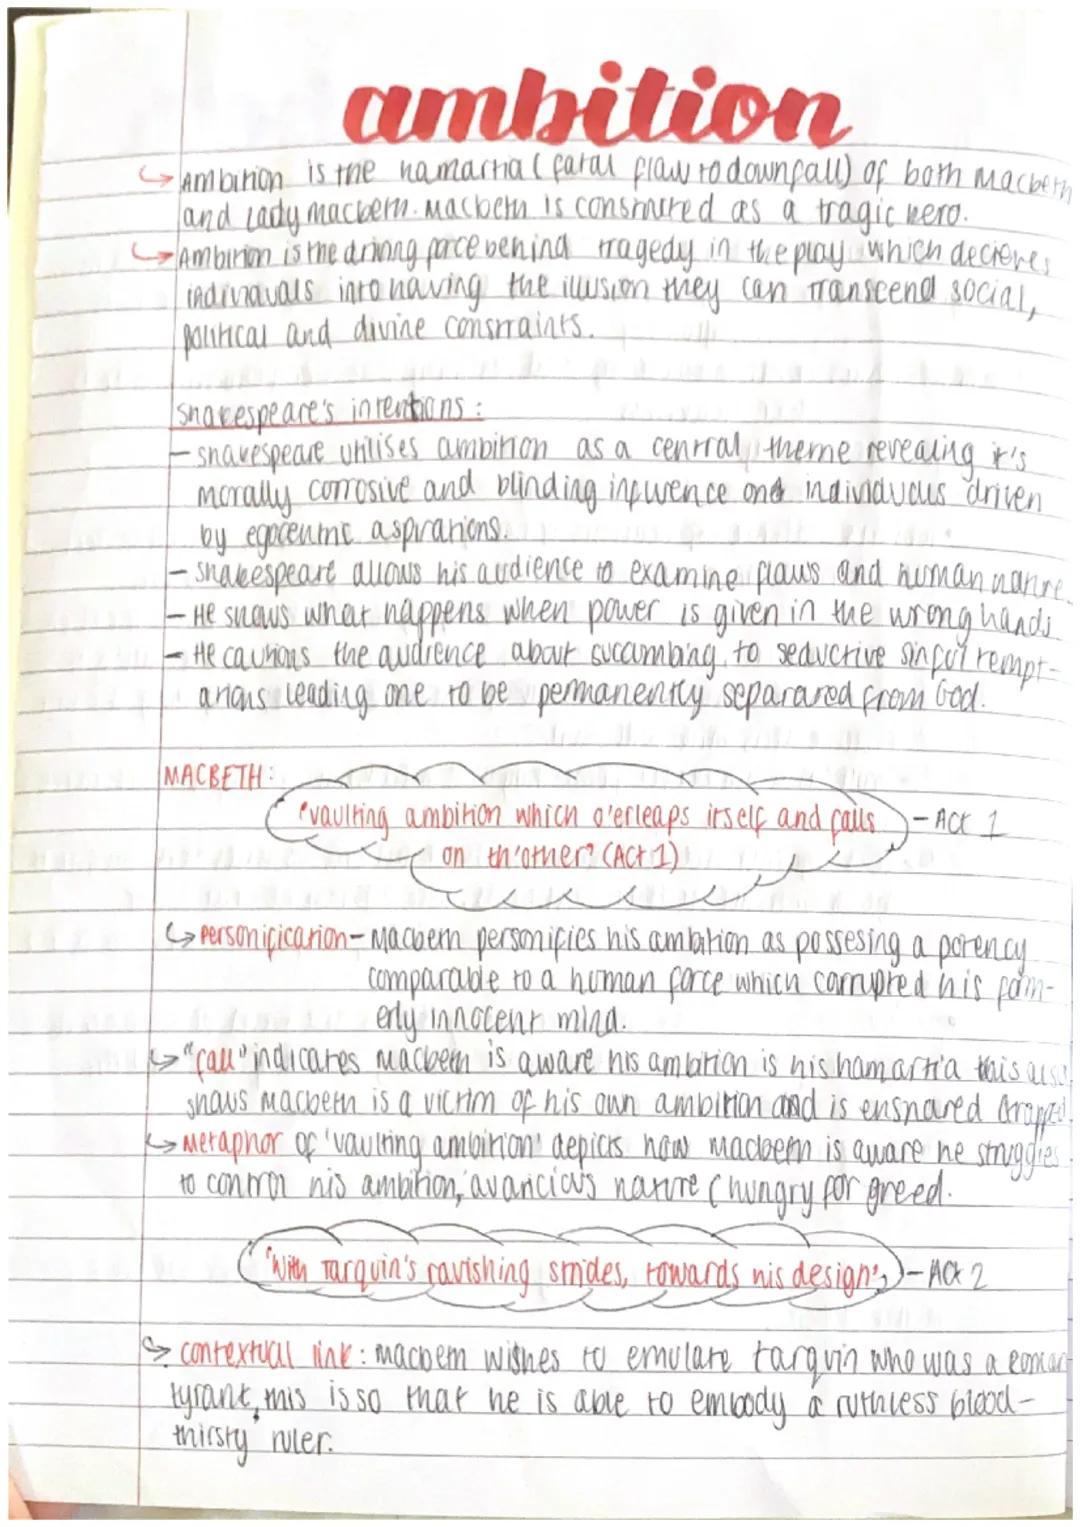 ambition
↳ Ambition is the hamartia (fatal flaw to downfall) of both macbeth
and lady macbeth. Macbeth is construed as a tragic hero.
↳ Ambition is the driving force behind tragedy in the play which decieves
individuals into having the illusion they can transcend social,
political and divine constraints.
Shakespeare's intentions:
- shakespeare utilises ambition as a central theme revealing it's
morally corrosive and blinding influence on individuals driven
by egocentric aspirations.
- shakespeare allows his audience to examine flaws and human nature
- He shows what happens when power is given in the wrong hands
- He cautions the audience about succumbing to seductive sinful tempt-
ations leading one to be permanently separated from God.
MACBETH:
"vaulting ambition which o'erleaps itself and falls - Act 1
on th'other" (Act 1)
↳ Personification - Macbeth personifies his ambition as possesing a potency
comparable to a human force which corrupted his form-
erly innocent mind.
↳ "fall" indicates macbeth is aware his ambition is his hamartia this also
shows Macbeth is a victim of his own ambition and is ensnared (trapped)
↳ Metaphor of 'vaulting ambition' depicts how macbeth is aware he struggles
to control his ambition, avaricious nature (hungry for greed.
"With Tarquin's ravishing strides, towards his design", - Act 2
↳ contextual link: macbeth wishes to emulate tarquin who was a roman
tyrant, this is so that he is able to embody a ruthless blood-
thirsty ruler.